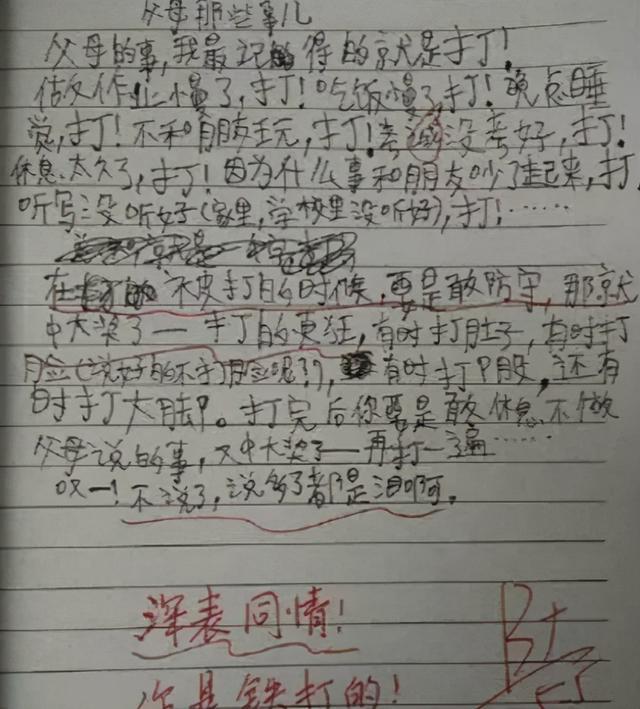 父母那些事儿
父母的事,我最记得的就是打!
做作业慢了,打!吃饭慢了,打!晚点睡
觉,打!不和朋友玩,打!考试没考好,打!
休息太久了,打!因为什么事和朋友吵了起来,打
听写没听好(家里,学校里没听好),打!……
在被打的时候,要是敢防守,那就
中大奖了——打的更狂,有时打肚子,有时打
脸(说好的不打脸呢?),有时打P股,还有
时打大腿。打完后你要是敢休息不做
父母说的事,又中大奖了——再打一遍……
哎—!不说了,说多了都是泪啊。
深表同情!
你是铁打的!
B+